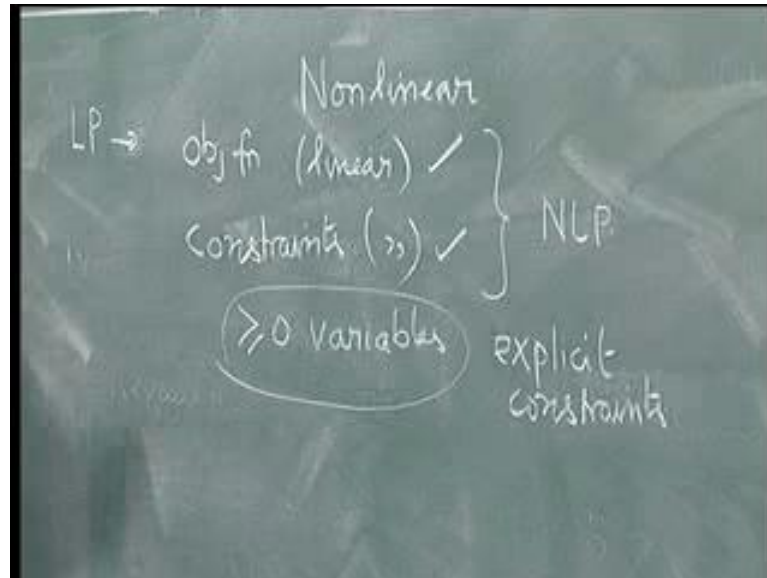 Nonlinear
LP → Obj fn (linear) ✓
Constraints (,,) ✓ } NLP
≥0 variables
explicit
constraints